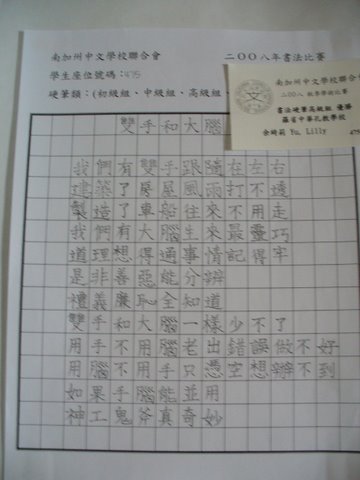 南加州中文學校聯合會
二○○八年書法比賽
學生座位號碼:475
硬筆類:(初級組、中級組、高級組、
南加州中文學校聯合會
二○○八 秋季學術比賽
書法硬筆高級組 優勝
羅省中華孔教學校
余綺莉 Yu, Lilly
475
雙手和大腦
我們有雙手跟隨在左右
建築了房屋風雨打不透
製造了車船往來不用走
我們有大腦生來最靈巧
道理想得通事情記得牢
是非善惡能分辨
禮義廉恥全知道
雙手和大腦一樣少不了
用手不用腦老出錯誤做不好
用腦不用手只憑空想辦不到
如果手腦能並用
神工鬼斧真奇妙